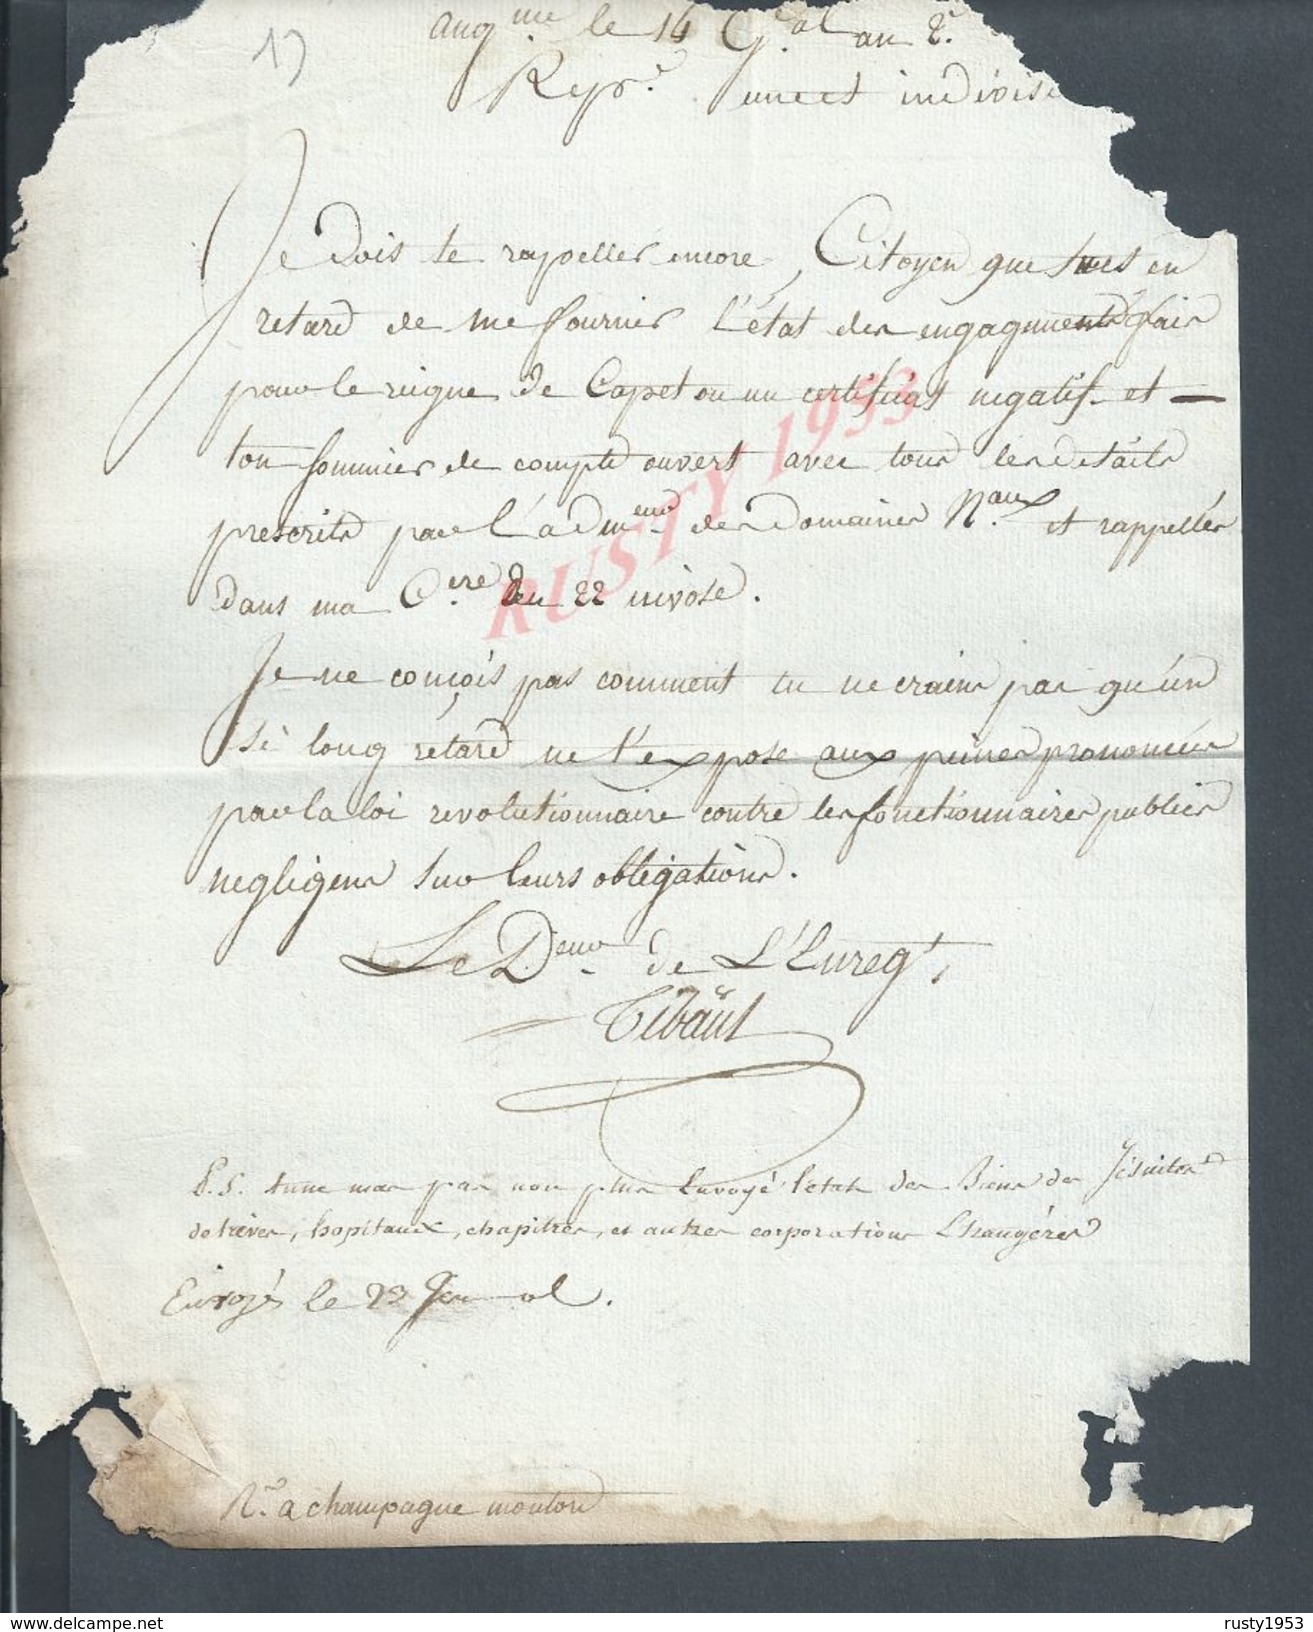 13
ang.me le 14 G.al an 2.e
Rep.e une et indivisi
Je dois te rappeller encore, Citoyen que tu es en
retard de me fournir l'état des engagments fais
pour le reigne de Capet ou un certificat negatif et —
ton sommier de compte ouvert avec tous les details
prescrits par l'adm.on des Domaines N.aux et rappellés
dans ma C.ere du 22 nivose.
Je ne conçois pas comment tu ne crains pas qu'un
si long retard ne t'expose aux peines prononcées
par la loi revolutionnaire contre les fonctionnaires publics
negligens sur leurs obligations.
Le D.eur de L'Enreg.t,
Tibaut
P.S. tu ne mas pas non plus envoyé l'etat des Biens des Jésuites
de treves, hopitaux, chapitres, et autres corporations Etrangéres
Envoyés le 23 Germinal.
R.r a champagne mouton
RUSTY 1953
www.delcampe.net
rusty1953